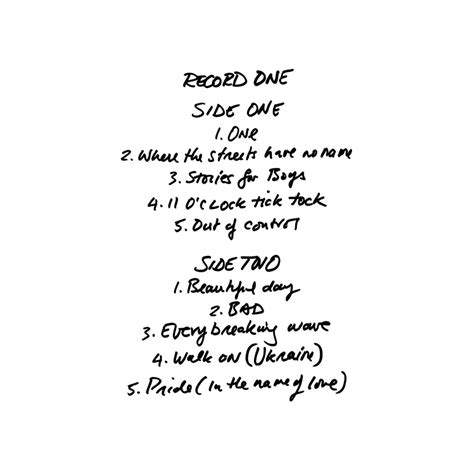 RECORD ONE
SIDE ONE
1. ONE
2. Where the streets have no name
3. Stories for Boys
4. 11 O'CLOCK tick tock
5. Out of control
SIDE TWO
1. Beautiful day
2. BAD
3. Every breaking wave
4. Walk on (Ukraine)
5. Pride (In the name of love)